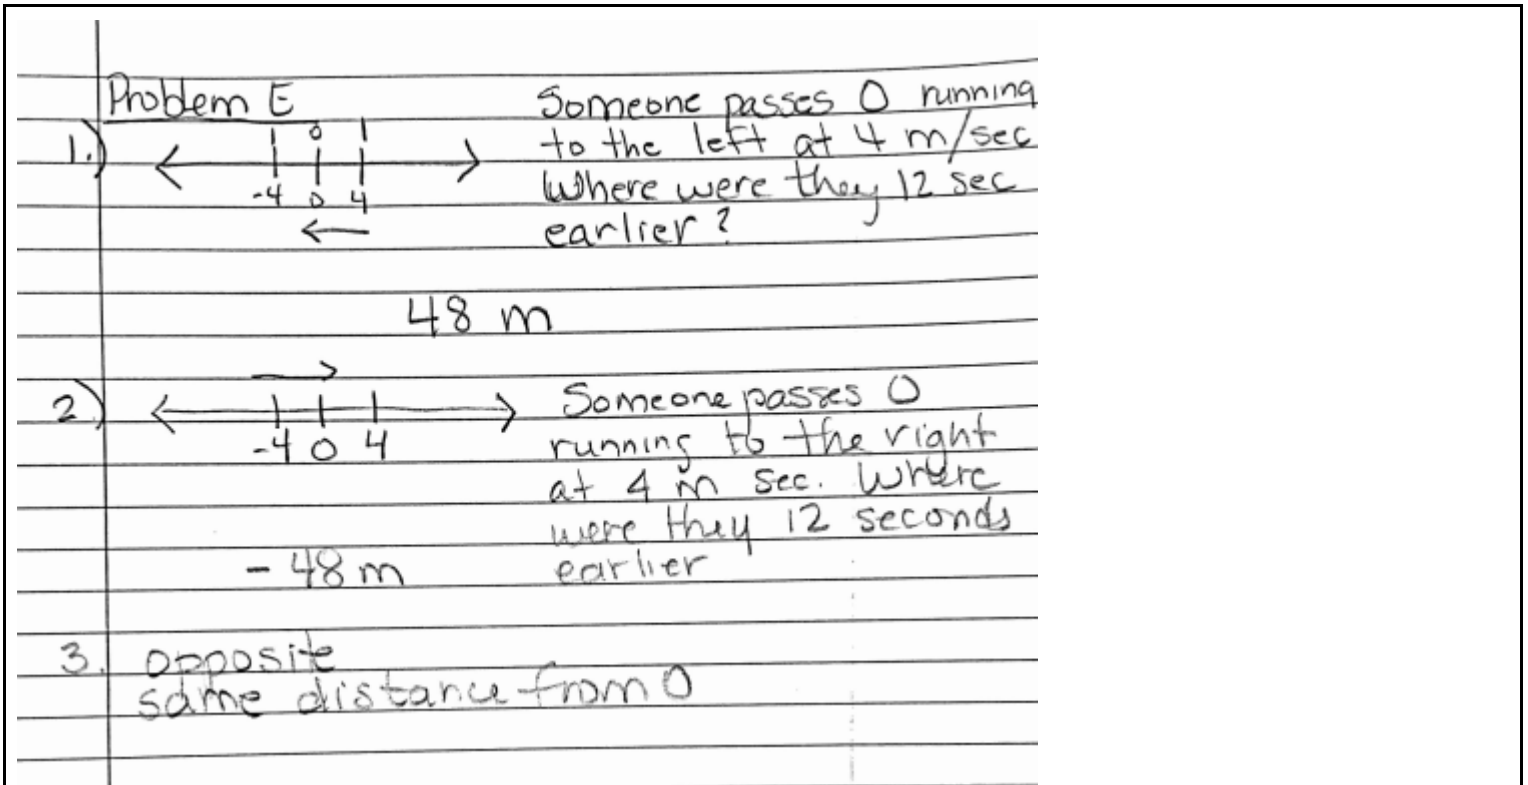 Problem E
1.)
1 0 1
-4 0 4
Someone passes 0 running
to the left at 4 m/sec
Where were they 12 sec
earlier?
48 m
2)
-4 0 4
Someone passes 0
running to the right
at 4 m sec. Where
were they 12 seconds
earlier
- 48 m
3. opposite
same distance from 0